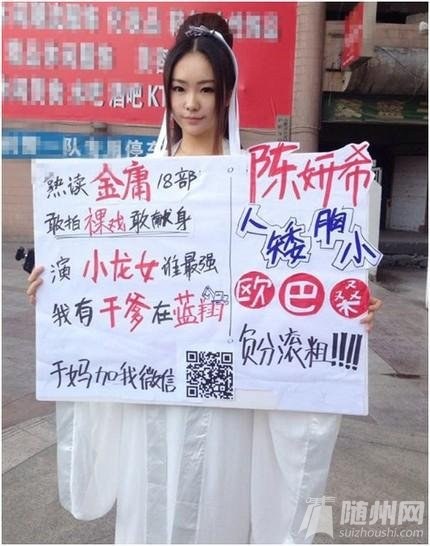 酒吧 KT
队专用停车
熟读 金庸 18部
敢拍 裸戏 敢献身
演 小龙女 谁最强
我有 干爹 在 蓝翔
于妈加我微信
陈妍希
人矮胆小
欧巴桑
负分滚粗!!!!
随州网
suizhoushi.com